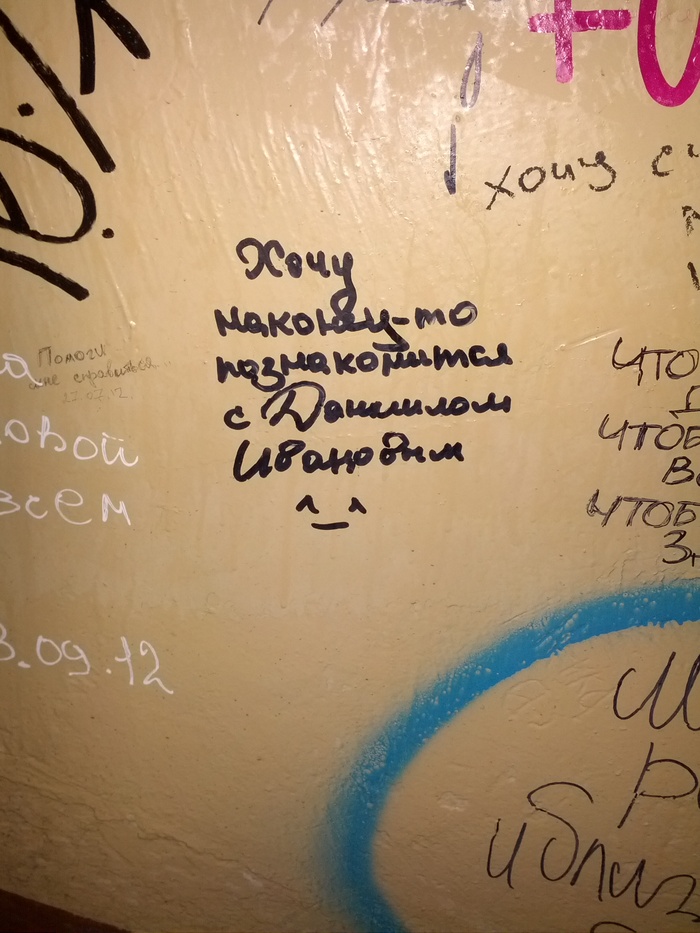 хочу
Хочу
наконец-то
познакомится
с Даниилом
Ивановым
^_^
Помоги
мне справиться
овой
всем
3.09.12
что
чтоб
чтоб
и близ